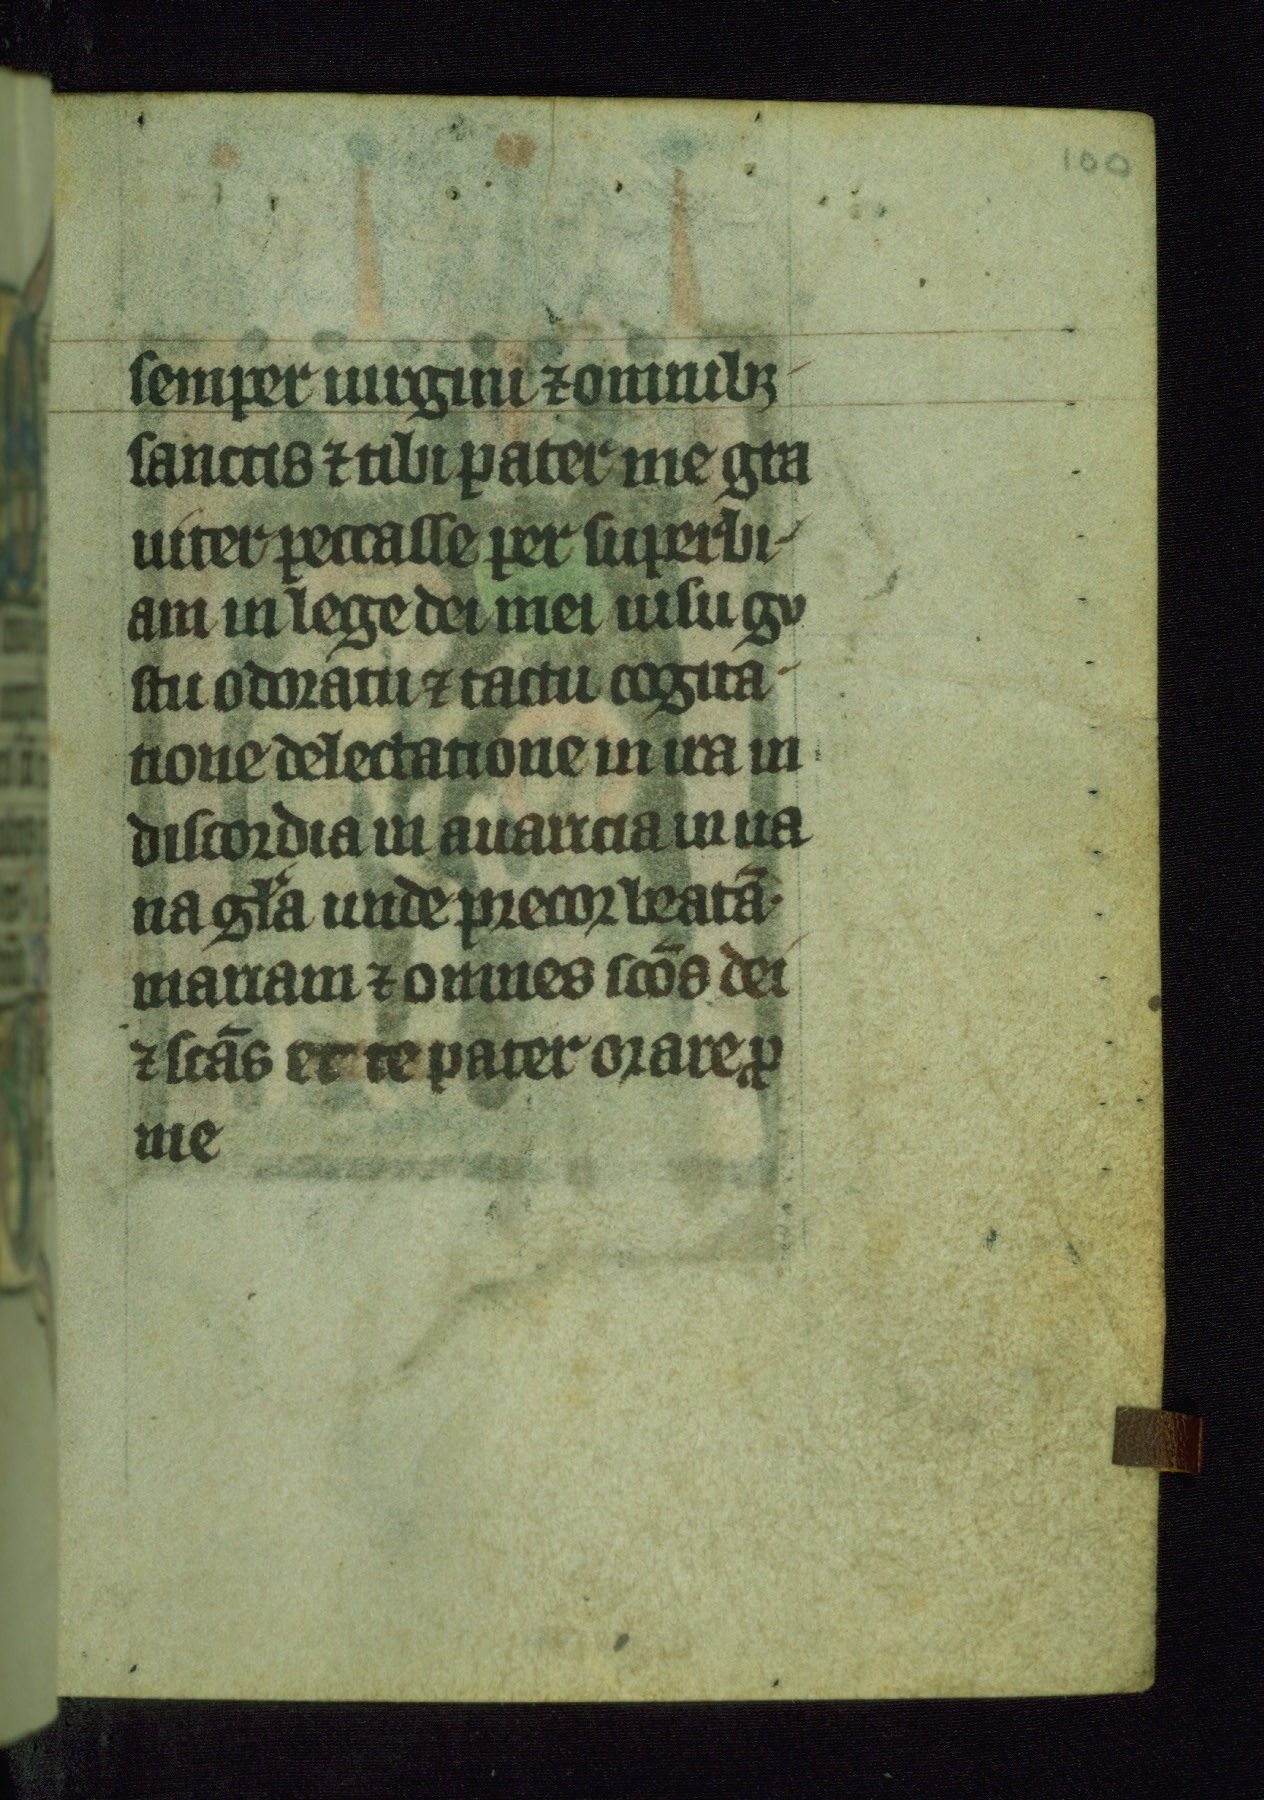 100
semper uirgini ⁊ omnibꝫ
sanctis ⁊ tibi pater me gra
uiter peccasse per superbi-
am in lege dei mei uisu gv
stu odoratu ⁊ tactu cogita-
tione delectatione in ira in
discordia in auaricia in ua
na gl̃a unde precor beatã
mariam ⁊ omnes sc̃os dei
⁊ sc̃as et te pater orare ꝓ
me